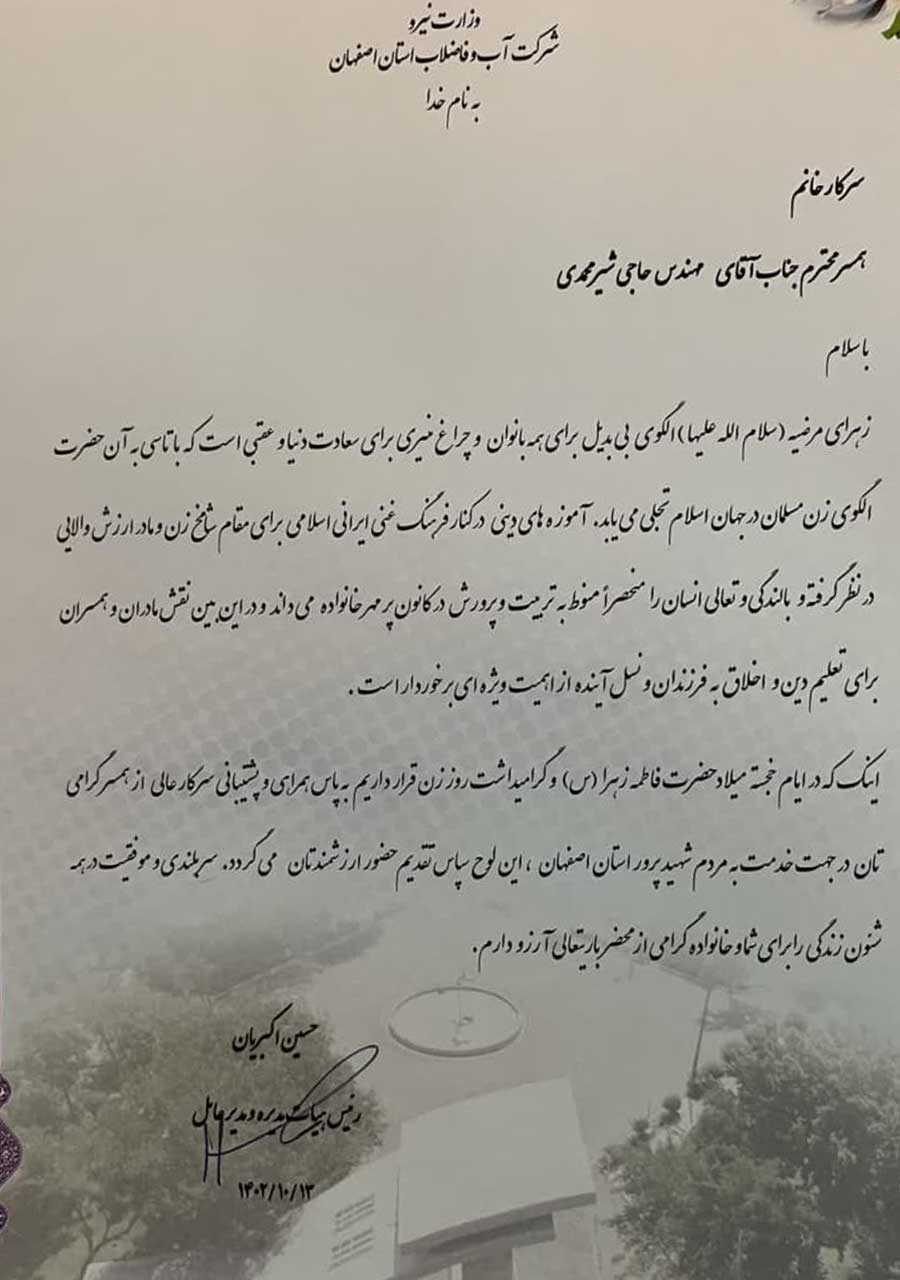 وزارت نیرو
شرکت آب و فاضلاب استان اصفهان
به نام خدا
سرکار خانم
همسر محترم جناب آقای مهندس حاجی شیرمحمدی
با سلام
زهرای مرضیه (سلام الله علیها) الگوی بی بدیل برای همه بانوان و چراغ منیری برای سعادت دنیا و عقبی است که با تاسی به آن حضرت
الگوی زن مسلمان در جهان اسلام تجلی می یابد. آموزه های دینی در کنار فرهنگ غنی ایرانی اسلامی برای مقام شامخ زن و مادر ارزش والایی
در نظر گرفته و بالندگی و تعالی انسان را منحصراً منوط به تربیت و پرورش در کانون پر مهر خانواده می داند و در این بین نقش مادران و همسران
برای تعلیم دین و اخلاق به فرزندان و نسل آینده از اهمیت ویژه ای برخوردار است.
اینک که در ایام خجسته میلاد حضرت فاطمه زهرا (س) و گرامیداشت روز زن قرار داریم به پاس همراهی و پشتیبانی سرکار عالی از همسر گرامی
تان در جهت خدمت به مردم شهید پرور استان اصفهان ، این لوح سپاس تقدیم حضور ارزشمندتان می گردد. سربلندی و موفقیت در همه
شئون زندگی را برای شما و خانواده گرامی از محضر باریتعالی آرزو دارم.
حسین اکبریان
رئیس هیات مدیره و مدیرعامل
۱۴۰۲/۱۰/۱۳